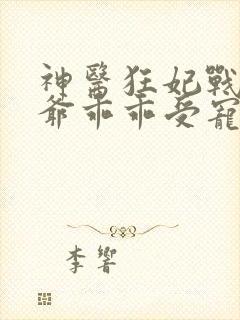 神醫狂妃戰
爺乖乖受寵
李響